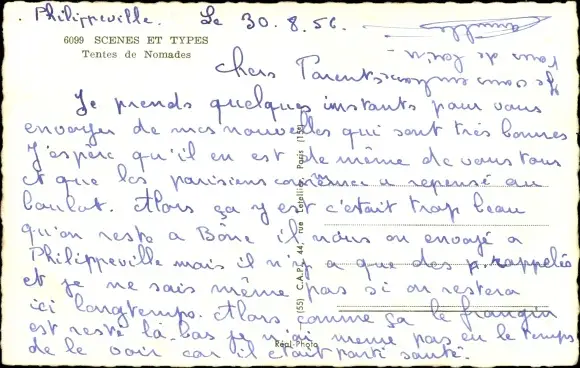 Philippeville. Le 30.8.56.
6099 SCENES ET TYPES
Tentes de Nomades
Chers Parents
Je prends quelques instants pour vous
envoyer de mes nouvelles qui sont très bonnes
J'espère qu'il en est de même de vous tous
et que les parisiens a repensé au
boulot. Alors ça y est c'était trop beau
qu'on reste a Bône il nous on envoyé a
Philippeville mais il n'y a que des rappelés
et je ne sais même pas si on restera
ici longtemps. Alors comme ça le frangin
est resté là-bas je n'ai même pas eu le temps
de le voir car il était parti sauté.
Je vous embrasse
tous de loin
(55) C.A.P. 44, rue Letellier, Paris (15e)
Réal-Photo